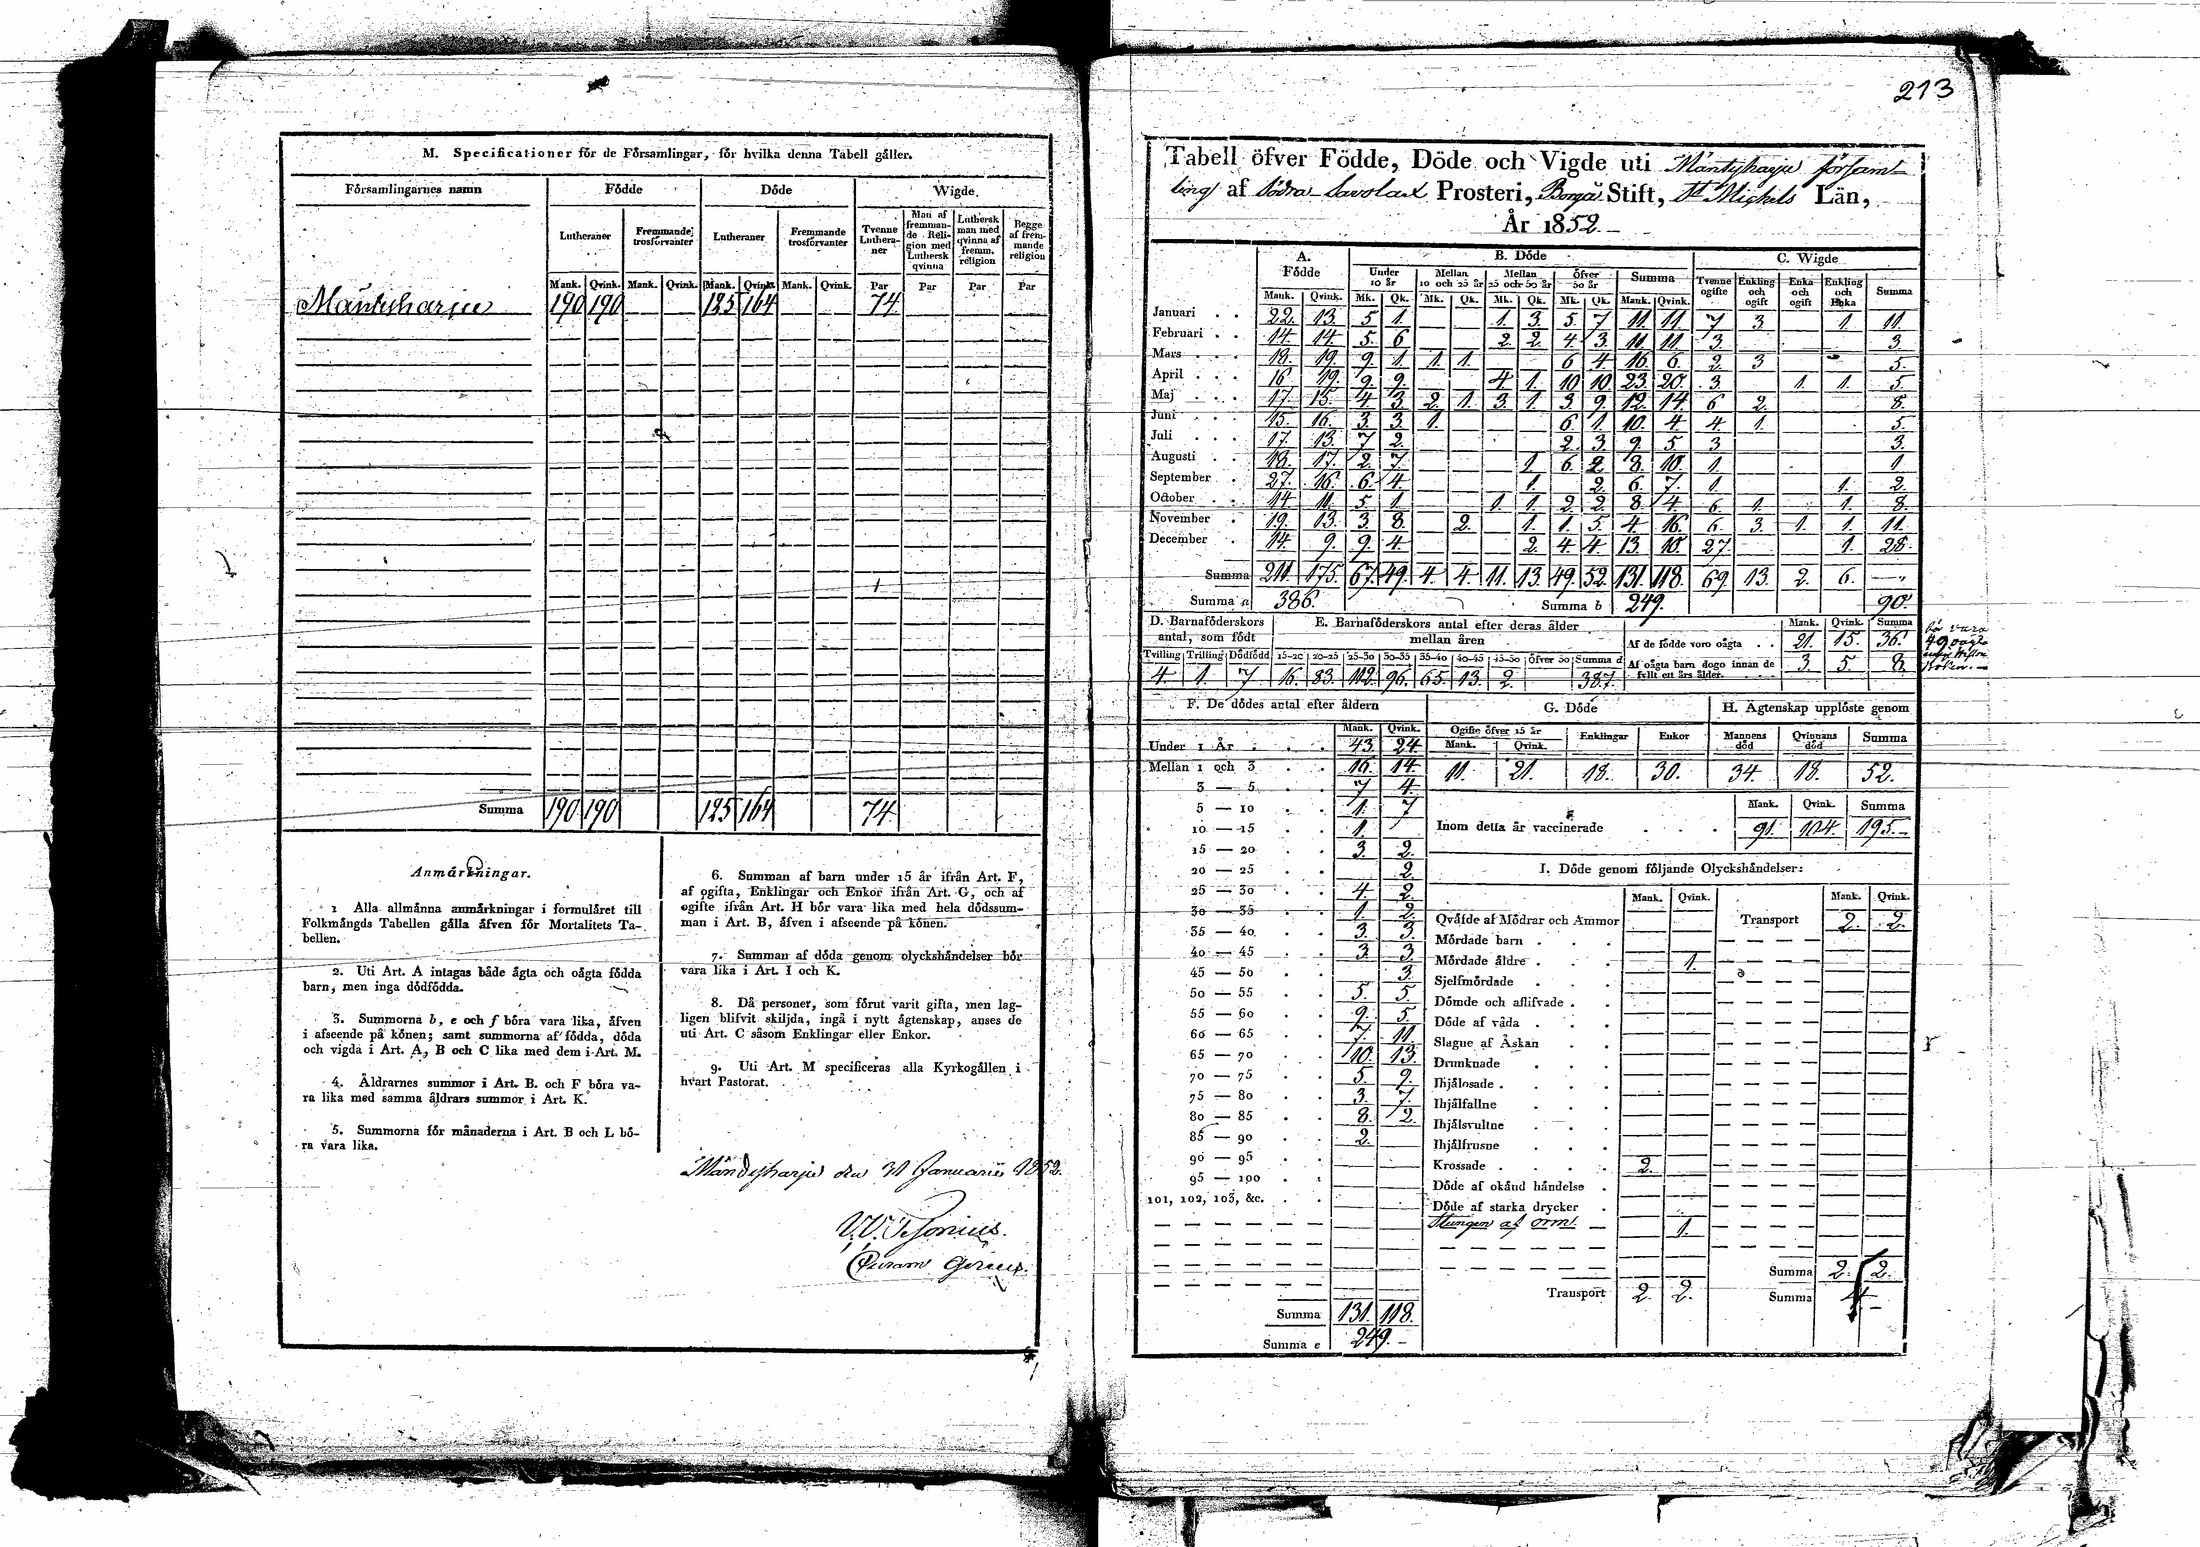 M. Specificationer för de Församlingar, för hvilka denna Tabell gäller.
Församlingarnes namn Födde Döde Wigde.
Lutheraner Fremmande trosförvanter Lutheraner Fremmande trosförvanter Tvenne Lutheraner Man af fremmande Religion med Luthersk qvinna Luthersk man med qvinna af fremm. religion Begge af fremmande religion
Mank. Qvink. Mank. Qvink. Mank. Qvink. Mank. Qvink. Par Par Par Par
Mäntyharju 190 190 125 164 74
Summa 190 190 125 164 74
Anmärkningar.
1 Alla allmänna anmärkningar i formuläret till
Folkmängds Tabellen gälla äfven för Mortalitets Ta-
bellen.
2. Uti Art. A intagas både ägta och oägta födda
barn, men inga dödfödda.
3. Summorna b, e och f böra vara lika, äfven
i afseende på könen; samt summorna af födda, döda
och vigda i Art. A, B och C lika med dem i Art. M.
4. Åldrarnes summor i Art. B. och F böra va-
ra lika med samma åldrars summor i Art. K.
5. Summorna för månaderna i Art. B och L bö-
ra vara lika.
6. Summan af barn under 15 år ifrån Art. F,
af ogifta, Enklingar och Enkor ifrån Art. G, och af
ogifte ifrån Art. H bör vara lika med hela dödssum-
man i Art. B, äfven i afseende på könen.
7. Summan af döda genom olyckshändelser bör
vara lika i Art. I och K.
8. Då personer, som förut varit gifta, men lag-
ligen blifvit skiljda, ingå i nytt ägtenskap, anses de
uti Art. C såsom Enklingar eller Enkor.
9. Uti Art. M specificeras alla Kyrkogällen i
hvart Pastorat.
Mändyharju den 31 Januarii 1852.
213
Tabell öfver Födde, Döde och Vigde uti Mäntyharju församl-
ling af Södra Savolax Prosteri, Borgå Stift, St Michels Län,
År 1852.
A. Födde B. Döde C. Wigde
Under 10 år Mellan 10 och 25 år Mellan 25 och 50 år Öfver 50 år Summa Tvenne ogifte Enkling och ogift Enka och ogift Enkling och Enka Summa
Mank. Qvink. Mk. Qk. Mk. Qk. Mk. Qk. Mk. Qk. Mank. Qvink.
Januari 22. 13. 5. 1. 1. 3. 5. 7. 11. 11. 7 3. 1. 11.
Februari 14. 14. 5. 6. 2. 2. 4. 3. 11. 11. 3. 3.
Mars 18. 19. 9. 1. 1. 1. 6. 4. 16. 6. 2. 3. 5.
April 16. 19. 9. 9. 4. 1. 10. 10. 23. 20. 3. 1. 1. 5.
Maj 17. 15. 4. 3. 2. 1. 3. 1. 3. 9. 12. 14. 6. 2. 8.
Juni 15. 16. 3. 3. 1. 6. 1. 10. 4. 4. 1. 5.
Juli 17. 13. 7. 2. 2. 3. 9. 5. 3. 3.
Augusti 18. 17. 2. 7. 1. 6. 2. 8. 10. 1. 1.
September 27. 16. 6. 4. 1. 2. 6. 7. 1. 1. 2.
October 14. 11. 5. 1. 1. 1. 2. 2. 8. 4. 6. 1. 1. 8.
November 19. 13. 3. 8. 2. 1. 1. 5. 4. 16. 6. 3. 1. 1. 11.
December 14. 9. 9. 4. 2. 4. 4. 13. 10. 27. 1. 28.
Summa 211. 175. 67. 49. 4. 4. 11. 13. 49. 52. 131. 118. 69. 13. 2. 6.
Summa a 386. Summa b 249. 90.
D. Barnaföderskors antal, som födt
Tvilling Trilling Dödfödd
4. 1. 7
E. Barnaföderskors antal efter deras ålder mellan åren
15-20 20-25 25-30 30-35 35-40 40-45 45-50 öfver 50 Summa d
16. 83. 112. 96. 65. 13. 2. 387.
Mank. Qvink. Summa
Af de födde voro oägta 21. 15. 36.
Af oägta barn dogo innan de fyllt ett års ålder. 3. 5. 8.
bör vara
F. De dödes antal efter åldern
Mank. Qvink.
Under 1 År 43. 24.
Mellan 1 och 3 16. 14.
3 — 5 7 4.
5 — 10 1. 7
10 — 15 1.
15 — 20 3. 2.
20 — 25 2.
25 — 30 4. 2.
30 — 35 1. 2.
35 — 40 3. 3.
40 — 45 3. 3.
45 — 50 3.
50 — 55 5. 5.
55 — 60 9. 5.
60 — 65 7. 11.
65 — 70 10. 13.
70 — 75 5. 9.
75 — 80 3. 7.
80 — 85 8. 2.
85 — 90 2.
90 — 95
95 — 100
101, 102, 103, &c.
Summa 131. 118.
Summa e 249.
G. Döde
Ogifte öfver 15 år Enklingar Enkor
Mank. Qvink.
11. 21. 18. 30.
H. Ägtenskap upplöste genom
Mannens död Qvinnans död Summa
34. 18. 52.
Mank. Qvink. Summa
Inom detta år vaccinerade 91. 104. 195.
I. Döde genom följande Olyckshändelser:
Mank. Qvink. Mank. Qvink.
Qväfde af Mödrar och Ammor Transport 2. 2.
Mördade barn
Mördade äldre 1.
Sjelfmördade
Dömde och aflifvade
Döde af våda
Slagne af Åskan
Drunknade
Ihjälosade
Ihjälfallne
Ihjälsvultne
Ihjälfrusne
Krossade 2.
Döde af okänd händelse
Döde af starka drycker
Stungen af orm. 1.
Summa 2. 2.
Transport 2. 2. Summa 4.